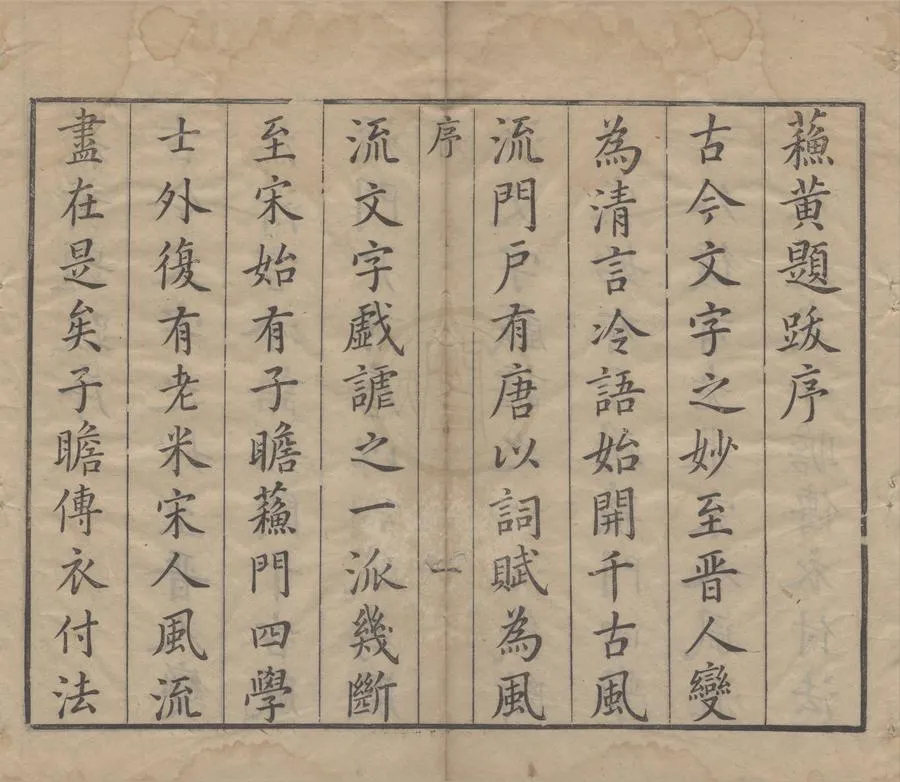 蘓黄題跋序
古今文字之妙至晋人變
為清言冷語始開千古風
流門戶有唐以詞賦為風
序
一
流文字戲謔之一派幾斷
至宋始有子瞻蘓門四學
士外復有老米宋人風流
盡在是矣子瞻傳衣付法